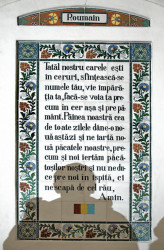 Roumain
Tatăl nostru carele ești
în ceruri, sfințească-se
numele tău, vie împără-
ția ta, facă-se voia ta pre
cum în cer așa și pre pă-
mânt. Pâinea noastră cea
de toate zilele dă-ne-o nouă
astăzi și ne iartă nouă
păcatele noastre, pre-
cum și noi iertăm păcă-
toșilor noștri și nu ne du-
ce pre noi în ispită, ci
ne scapă de cel rău,
Amin.